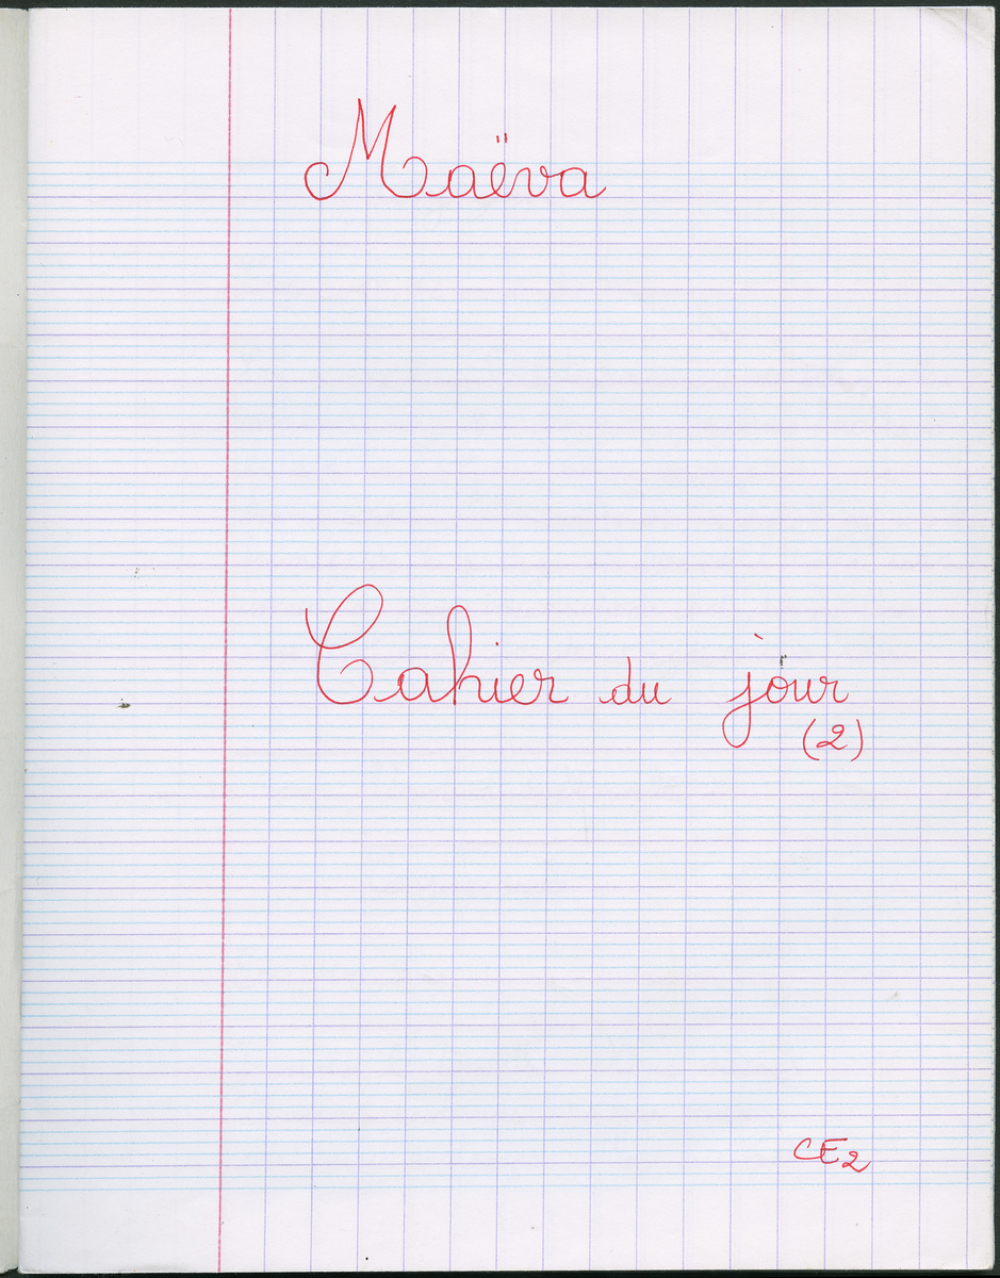 Maëva
Cahier du jour
(2)
CE2